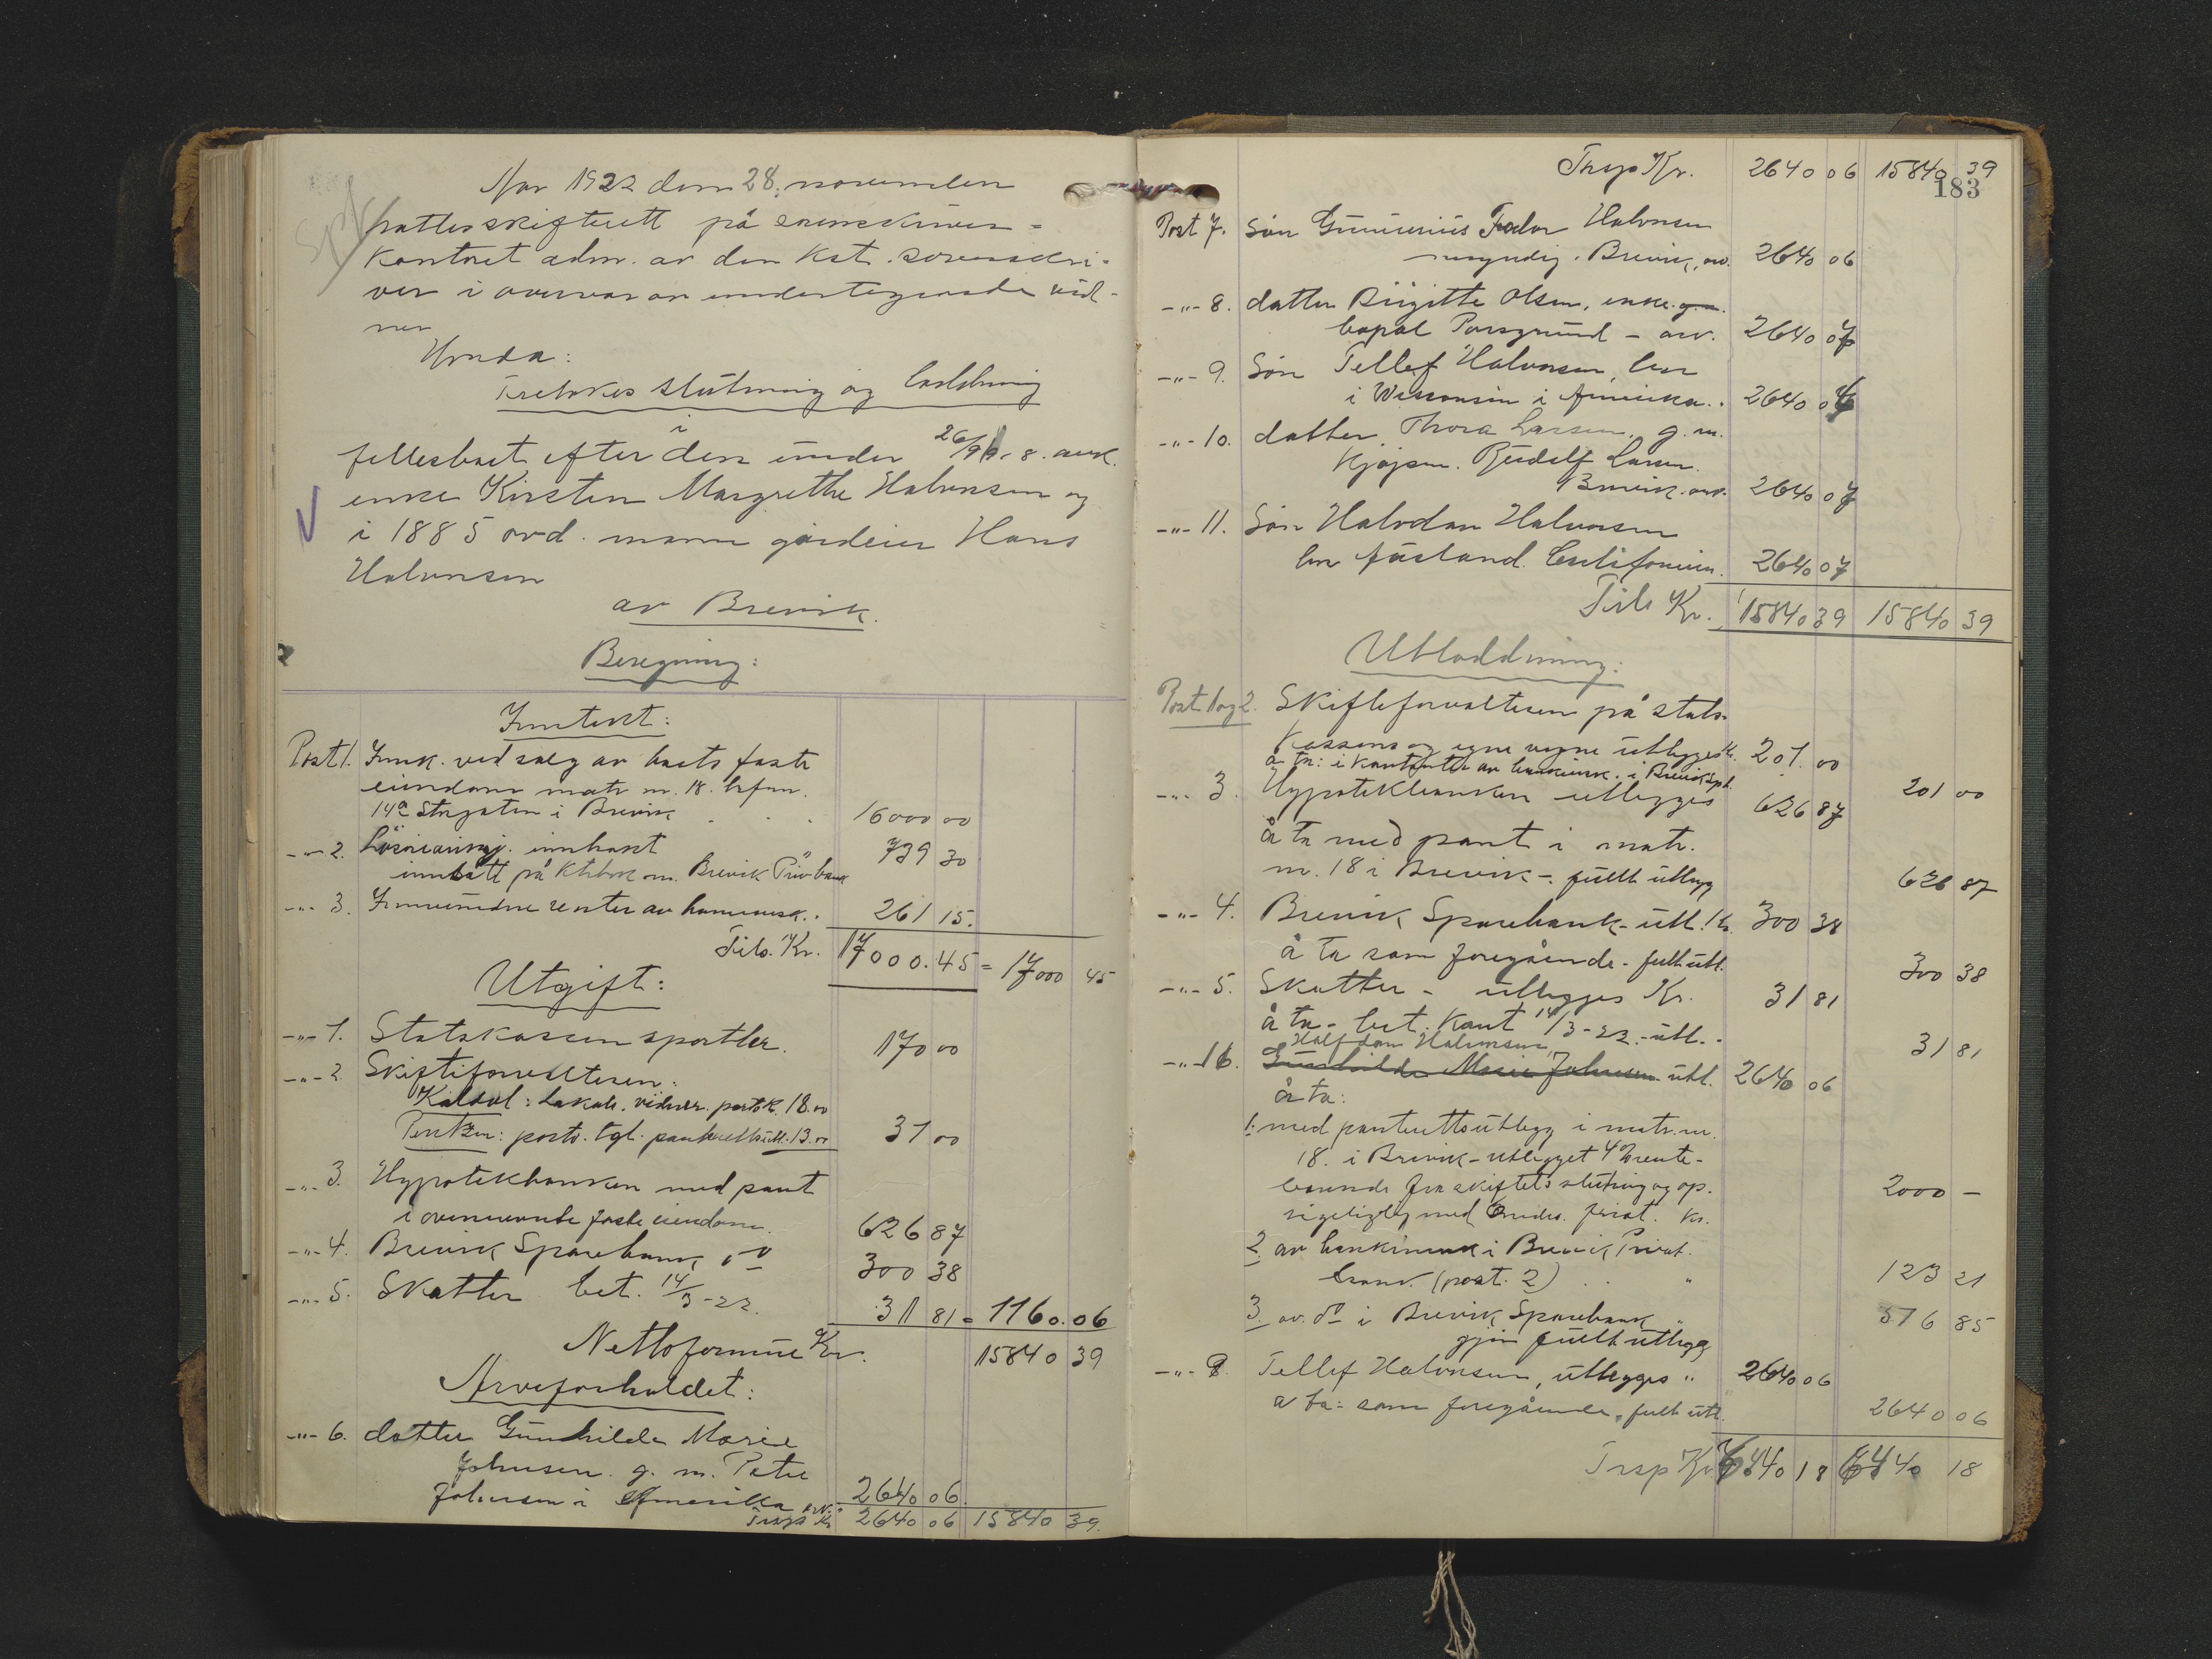 År 1922 den 28. november
sattes skifterett på sorenskriver-
kontoret adm. av den kst. sorenskri-
ver i overvær av undertegnede vid-
ner
Hvorda:
Foretokes slutning og lodding
i
fellesboet efter den under 26/9 - 8. avd.
enke Kirsten Margrethe Halvorsen og
i 1885 avd. mann gårdeier Hans
Halvorsen
av Brevik.
Beregning:
Inntekt:
Post 1. Innk. ved salg av boets faste
eiendom matr. nr. 18. brfnr.
14a Storgaten i Brevik . . . 16000 00
-"- 2. Løsøreauksj. innkast
innsatt på ktrbok nr. Brevik Privbank 739 30
-"- 3. Innvundne renter av bankinnsk. . 261 15.
Tils. Kr. 17000.45 = 17000 45
Utgift:
-"- 1. Statskassen sportler. 170 00
-"- 2. Skifteforvalteren:
Kaldvl: Lokale. vidner. portok. 18.00
porto. tgl. 13.00 31 00
-"- 3. Hypotekbanken med pant
i ovennevnte faste eiendom. 626 87
-"- 4. Brevik Sparebank do 300 38
-"- 5. Skatter bet. 14/3-22. 31 81 = 1160.06
Nettoformue Kr. 15840 39
Arveforholdet:
-"- 6. datter Gunhilde Marie
Johnsen. g. m. Peter
Johnsen i Amerika arv. 2640 06.
Trsp Kr 2640 06 15840 39.
Trsp Kr. 2640 06 15840 39
183
Post 7. Søn Gunerius Fredor Halvorsen
myndig. Brevik, arv. 2640 06
-"- 8. datter Birgitte Olsen, enke. g.m.
bopæl Porsgrund - arv. 2640 07
-"- 9. Søn Tellef Halvorsen, bor
i Wisconsin i Amerika. . 2640 06
-"- 10. datter. Thora Larsen, g. m.
Kjøpm. Rudolf Larsen.
Brevik. arv. 2640 07
-"- 11. Søn Halvdan Halvorsen
bor Californien. 2640 07
Tils Kr. 15840 39 15840 39
Utloddning:
Post 1 og 2. Skifteforvalteren på stats-
kassens og egne vegne utlegges Kr. 201.00
å ta: i kontanter av bankinnsk. i Brevik Spb. 201 00
-"- 3. Hypotekbanken utlegges 626 87
å ta med pant i matr.
nr. 18 i Brevik -. fullt utlegg 626 87
-"- 4. Brevik Sparebank - utl. Kr. 300 38
å ta som foregående - fullt utl. 300 38
-"- 5. Skatter - utlegges Kr. 31 81
å ta - bet. kont 14/3-22. - utl. . 31 81
Halfdan Halvorsen
-"- 16. Gunhilde Marie Johnsen utl. 2640 06
å ta:
1. med panterettsutlegg i matr. nr.
18. i Brevik - utlegget 4% rente-
bærende fra skiftets slutning og op-
sigeligtlig med 6 mdrs. frist. Kr. 2000 -
2. av bankinnsk i Brevik Privat-
bank. (post. 2) . . " 123 21
3. av. do i Brevik Sparebank " 516 85
gjør fullt utlegg
-"- 9. Tellef Halvorsen, utlegges " 2640 06
å ta: som foregående, fullt utl. 2640 06
Trsp Kr 6440 18 6440 18